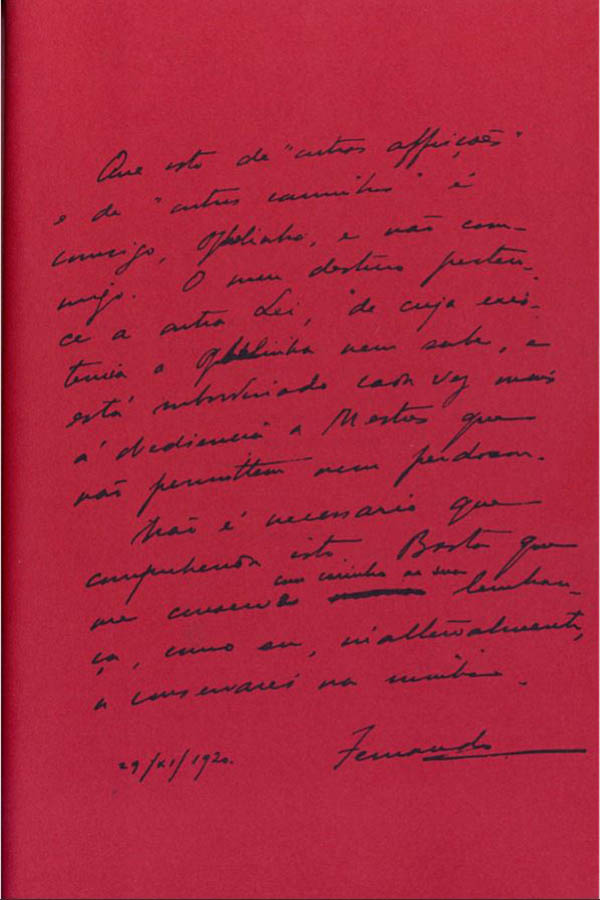 Que isto de "outras affeições"
e de "outros caminhos" é
comsigo, Ophelinha, e não com-
migo. O meu destino perten-
ce a outra Lei, de cuja exis-
tencia a Ophelinha nem sabe, e
está subordinado cada vez mais
á obediencia a Mestres que
não permittem nem perdoam.
Não é necessario que
comprehenda isto. Basta que
me conserve com carinho na sua lembran-
ça, como eu, inalteravelmente,
a conservarei na minha.
29/XI/1920. Fernando